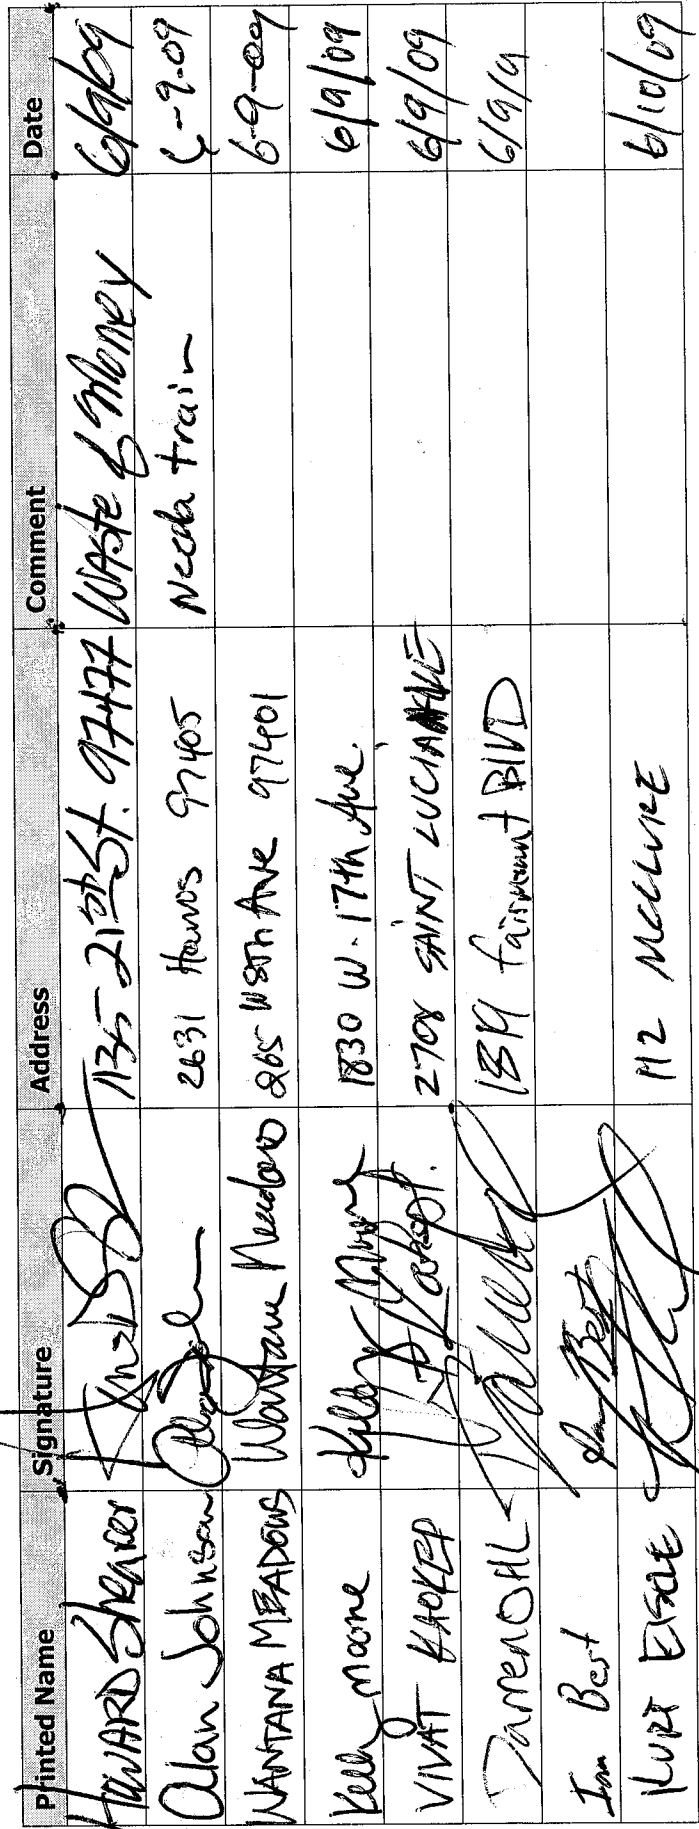 Printed Name Signature Address Comment Date
HOWARD Shearer 1135 21st St. 97477 Waste of Money 6/9/09
Alan Johnson 2631 97405 Need a train 6-9-09
WANTANA MEADOWS Wantana Meadows 265 W 8th Ave 97401 6-9-09
Kelly moore Kelly Moore 1830 W. 17th Ave. 6/9/09
VIVAT 2708 SAINT LUCIA AVE 6/9/09
Darren OHL 1819 Fairmount BlVD 6/9/9
Best Best
KURT 112 MCCLURE 6/10/09